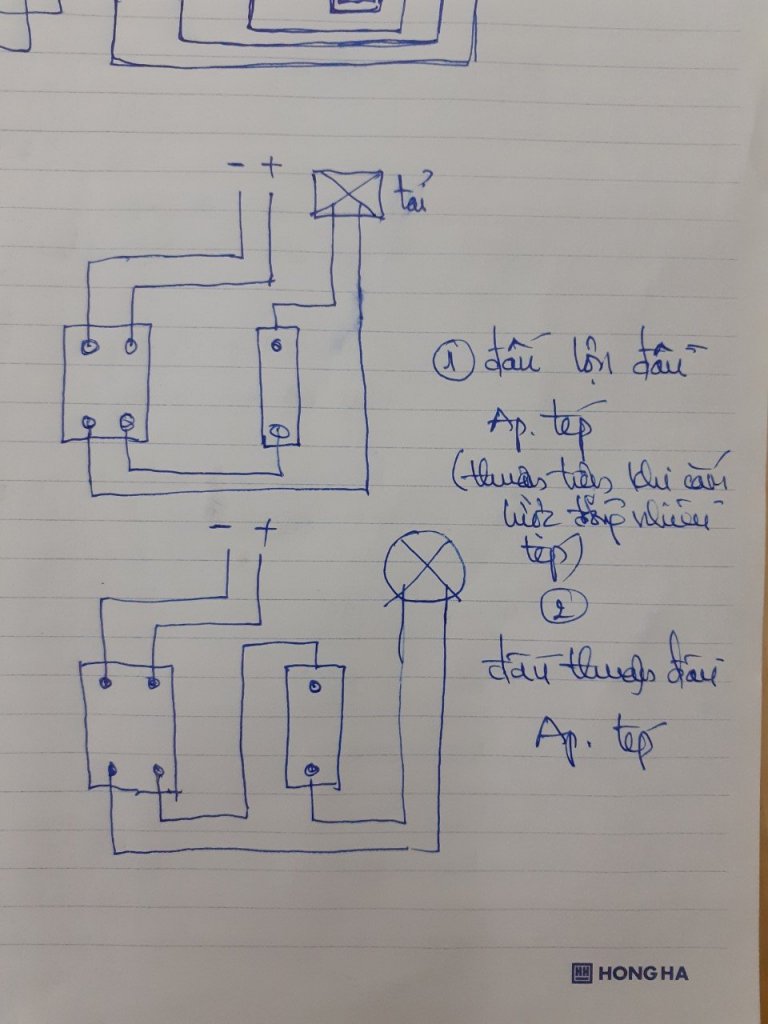 - +
tải
① đấu lộn đầu
Ap. tép
(thuận tiện khi cần
nhiều
tép)
- +
②
đấu thuận đầu
Ap. tép
HH HONG HA